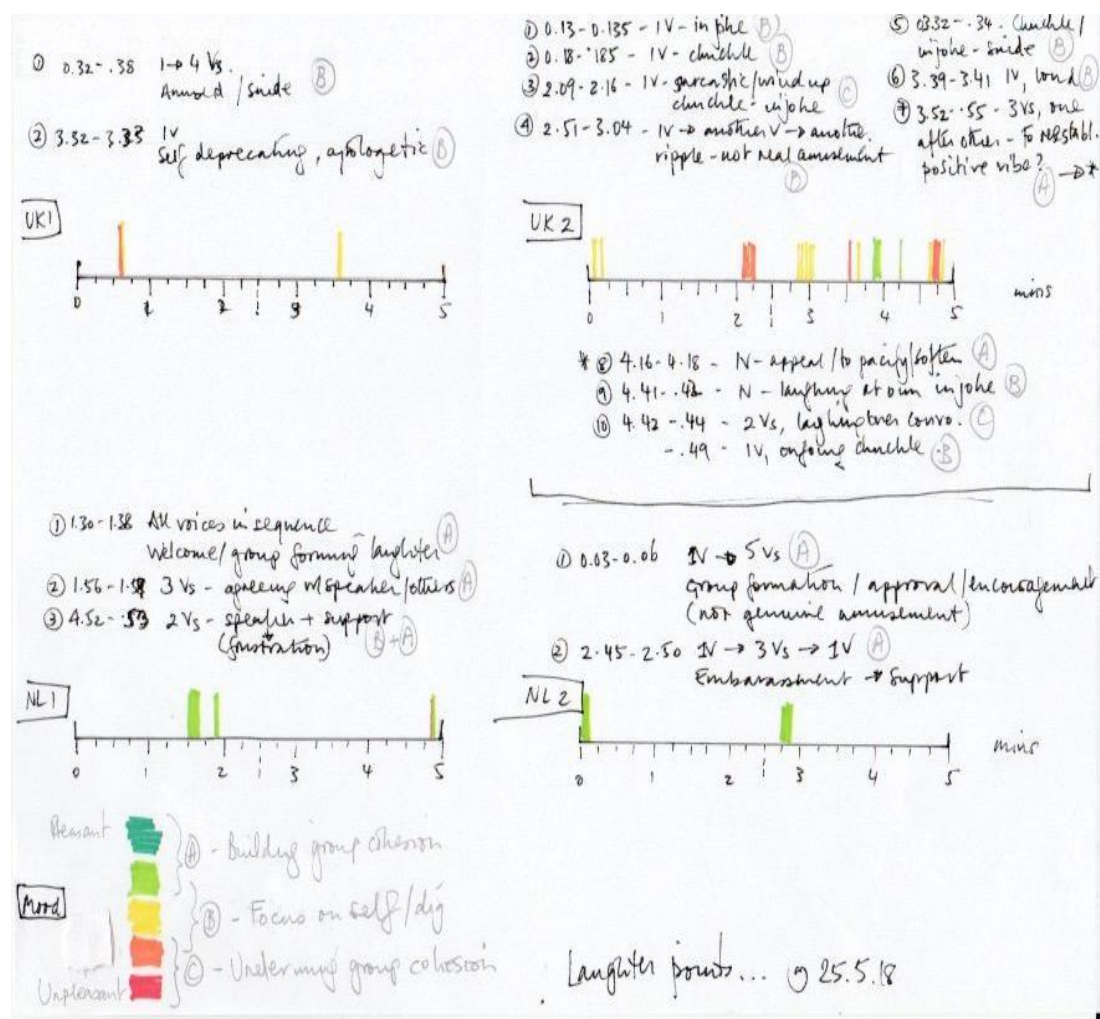 ① 0.32-.38 1→4 Vs.
Amused / snide Ⓑ
② 3.32-3.33 1V
Self deprecating, apologetic Ⓑ
UK1
0 1 2 3 4 5
① 0.13-0.135 - 1V - in joke Ⓑ
② 0.18-.185 - 1V - chuckle Ⓑ
③ 2.09-2.16 - 1V - sarcastic/wind up
chuckle - injoke Ⓒ
④ 2.51-3.04 - 1V → another V → another.
ripple - not real amusement
Ⓑ
⑤ 03.32-.34. Chuckle/
injoke - snide Ⓑ
⑥ 3.39-3.41 1V, loud Ⓑ
⑦ 3.52-.55 - 3Vs, one
after other - to reestabl.
positive vibe?
Ⓐ → *
UK2
0 1 2 3 4 5
mins
* ⑧ 4.16-4.18 - 1V - appeal/to pacify/soften Ⓐ
⑨ 4.41-.42 - 1V - laughing at own injoke Ⓑ
⑩ 4.42-.44 - 2Vs, laughing over convo. Ⓒ
-.49 - 1V, ongoing chuckle Ⓑ
① 1.30-1.38 All voices in sequence
Welcome/group forming laughter Ⓐ
② 1.56-1.58 3Vs - agreeing w/speaker/others Ⓐ
③ 4.52-.53 2Vs - speaker + support
(frustration) Ⓑ+Ⓐ
NL1
0 1 2 3 4 5
① 0.03-0.06 1V → 5Vs Ⓐ
Group formation / approval/encouragement
(not genuine amusement)
② 2.45-2.50 1V → 3Vs → 1V Ⓐ
Embarassment → Support
NL2
0 1 2 3 4 5
mins
Mood
Pleasant
Ⓐ - Building group cohesion
Ⓑ - Focus on self/dig
Ⓒ - Undermining group cohesion
Unpleasant
Laughter points... 25.5.18